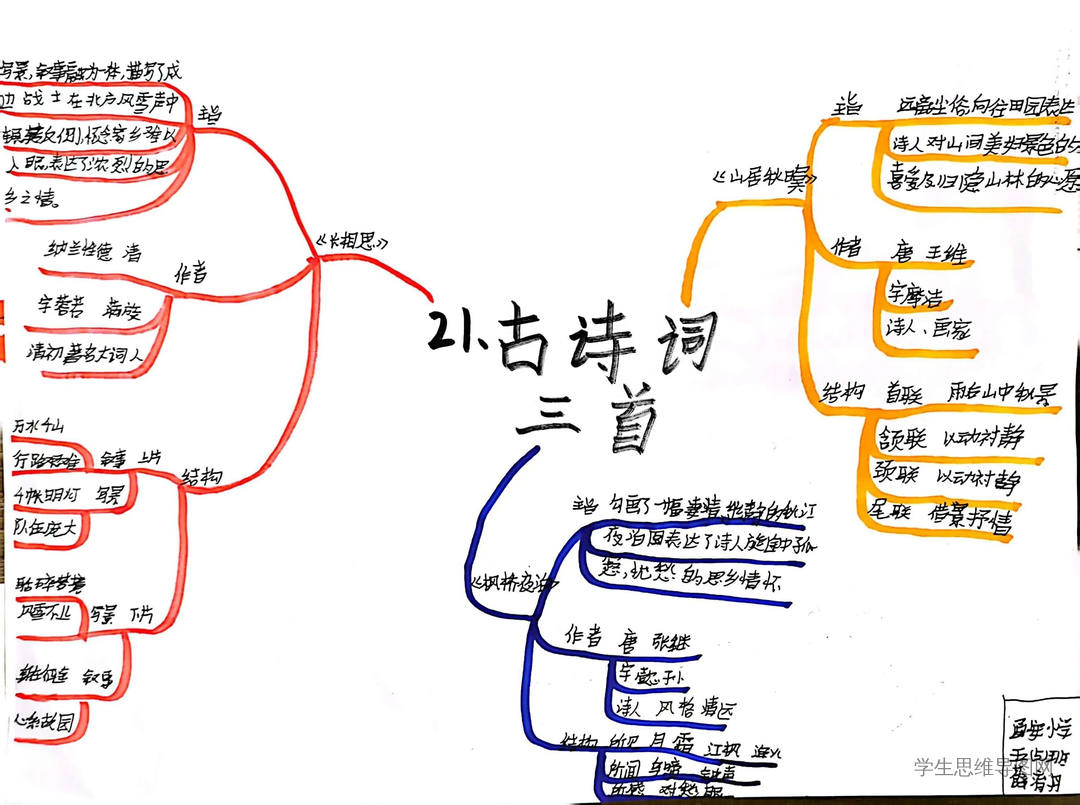 21.古诗词
三首
《长相思》
主旨
写景,叙事融为一体,描写了戍
边战士在北方风雪声中
乡之情。
作者
纳兰性德 清
字蓉若 满族
清初著名大词人
结构
上片
叙事
万水千山
写景
千帐明灯
队伍庞大
下片
写景
风雪不止
叙事
心系故园
《山居秋暝》
主旨
远离尘俗向往田园表达
诗人对山间美好景色的
喜爱及归隐山林的心愿
作者 唐 王维
字摩诘
诗人、画家
结构 首联 雨后山中秋景
颔联 以动衬静
颈联 以动衬静
尾联 借景抒情
《枫桥夜泊》
主旨 勾画了一幅凄清
夜泊图表达了诗人旅途中孤
愁,忧愁的思乡情怀
作者 唐 张继
字懿孙
诗人 风格清远
结构 所见 月 霜 江枫 渔火
所闻 乌啼 钟声
所感 对愁眠
学生思维导图网